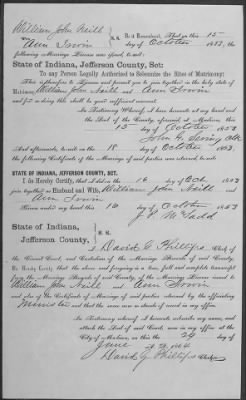 William John Neill
and
Ann Irwin
B. it Remembered, That on this 15
day of October 1853, the
following Marriage License was issued, to-wit:
State of Indiana, Jefferson County, Sct:
To any Person Legally Authorized to Solemnize the Rites of Matrimony:
This authorizes to License and permit you to join together in the holy state of
Matrimony William John Neill and Ann Irwin
and for so doing this shall be your sufficient warrant.
In Testimony Whereof, I have hereunto set my hand and
the Seal of the County aforesaid, at Madison, this
15 day of October 1853
John H. Clk.
And afterwards, to-wit: on the 18 day of October 1853
the following Certificate of the Marriage of said parties was returned, to-wit:
STATE OF INDIANA, JEFFERSON COUNTY, SCT.
I do Hereby Certify, that I did on the 16 of Oct 1853
join together as Husband and Wife, William John Neill and
Ann Irwin
Given under my hand this 16 day of October 1853
State of Indiana,
Jefferson County,
I, David G Phillips Clerk of
the Circuit Court, and Custodian of the Marriage Records of said County,
Do Hereby Certify, that the above and foregoing is a true, full and complete transcript
from the Marriage Records of said County, of the Marriage License issued to
William John Neill and Ann Irwin
and also of the Certificate of Marriage of said parties returned by the officiating
Minister and that the same now is and stands of record in my office.
In Testimony whereof I hereunto subscribe my name, and
attach the Seal of said Court, now in my office at the
City of Madison, on this the 24 day of
June
David G Phillips Clerk